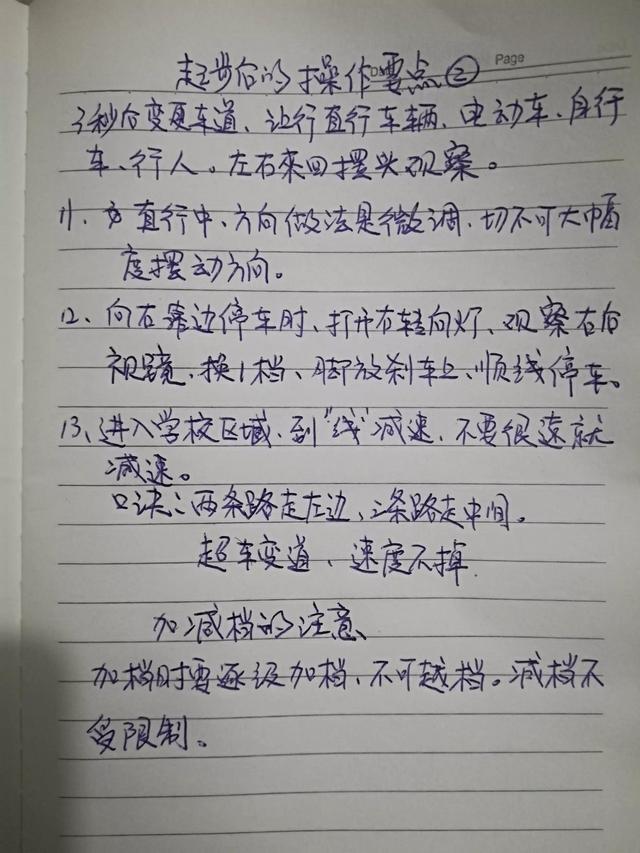 Page
起步后的操作要点②
3秒后变更车道、让行直行车辆、电动车、自行
车、行人。左右来回摆头观察。
11、在直行中、方向做法是微调、切不可大幅
度摆动方向。
12、向右靠边停车时、打开右转向灯、观察右后
视镜、换1档、脚放刹车上、顺线停车。
13、进入学校区域、到"线"减速、不要很远就
减速。
口诀：两条路走左边、三条路走中间。
超车变道、速度不掉
加减档的注意、
加档时要逐级加档、不可越档。减档不
受限制。